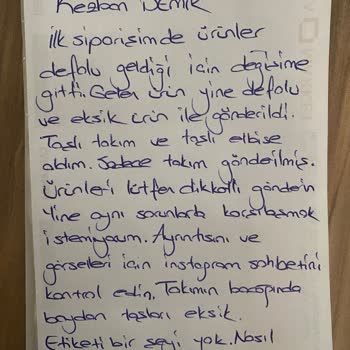 Kezban DEMİR
İlk siparişimde ürünler
defolu geldiği için değişime
gitti. Gelen ürün yine defolu
ve eksik ürün ile gönderildi.
Taşlı takım ve taşlı elbise
aldım. Sadece takım gönderilmiş.
Ürünleri lütfen dikkatli gönderin
Yine aynı sorunlarla karşılaşmak
istemiyorum. Ayrıntısını ve
görselleri için instagram sohbetini
kontrol edin. Takımın bacasında
boydan taşları eksik.
Etiketi bir şeyi yok. Nasıl